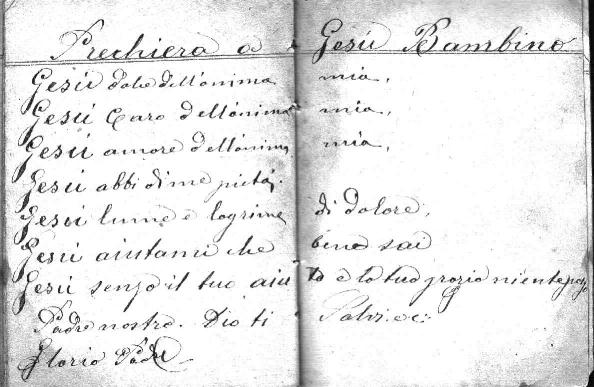 Prechiera a Gesú Bambino
Gesú dolce dell'anima mia,
Gesú Caro dell'anima mia,
Gesú amore dell'anima mia,
Gesú abbi di me pietá.
Gesú lume e lagrime di dolore,
Gesú aiutami che bene sai
Gesú senza il tuo aiuto e la tua grazia niente
Padre nostro. Dio ti Salvi. ec:
Gloria Padre